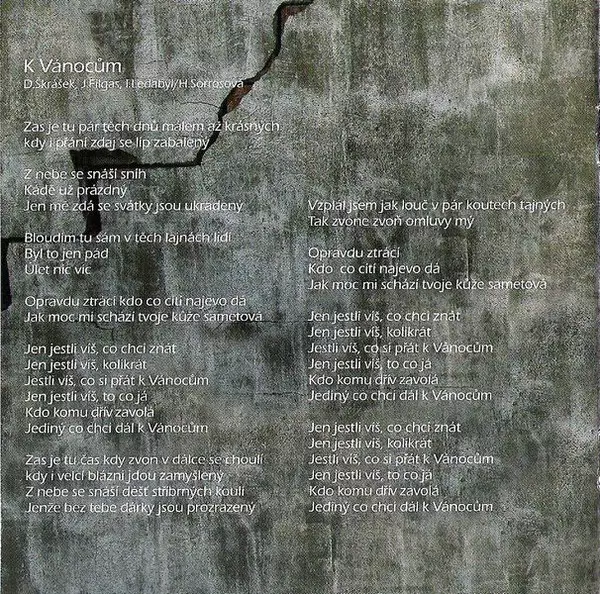 K Vánocům
D.Škrášek, J.Filgas, I.Ledabyl/H.Sorrosová
Zas je tu pár těch dnů málem až krásných
kdy i přání zdaj se líp zabalený
Z nebe se snáší sníh
Kádě už prázdný
Jen mě zdá se svátky jsou ukradený
Bloudím tu sám v těch lajnách lidí
Byl to jen pád
Úlet nic víc
Opravdu ztrácí kdo co cítí najevo dá
Jak moc mi schází tvoje kůže sametová
Jen jestli víš, co chci znát
Jen jestli víš, kolikrát
Jestli víš, co si přát k Vánocům
Jen jestli víš, to co já
Kdo komu dřív zavolá
Jediný co chci dál k Vánocům
Zas je tu čas kdy zvon v dálce se choulí
kdy i velcí blázni jdou zamyšlený
Z nebe se snáší déšť stříbrných koulí
Jenže bez tebe dárky jsou prozrazený
Vzplál jsem jak louč v pár koutech tajných
Tak zvone zvoň omluvy mý
Opravdu ztrácí
Kdo co cítí najevo dá
Jak moc mi schází tvoje kůže sametová
Jen jestli víš, co chci znát
Jen jestli víš, kolikrát
Jestli víš, co si přát k Vánocům
Jen jestli víš, to co já
Kdo komu dřív zavolá
Jediný co chci dál k Vánocům
Jen jestli víš, co chci znát
Jen jestli víš, kolikrát
Jestli víš, co si přát k Vánocům
Jen jestli víš, to co já
Kdo komu dřív zavolá
Jediný co chci dál k Vánocům